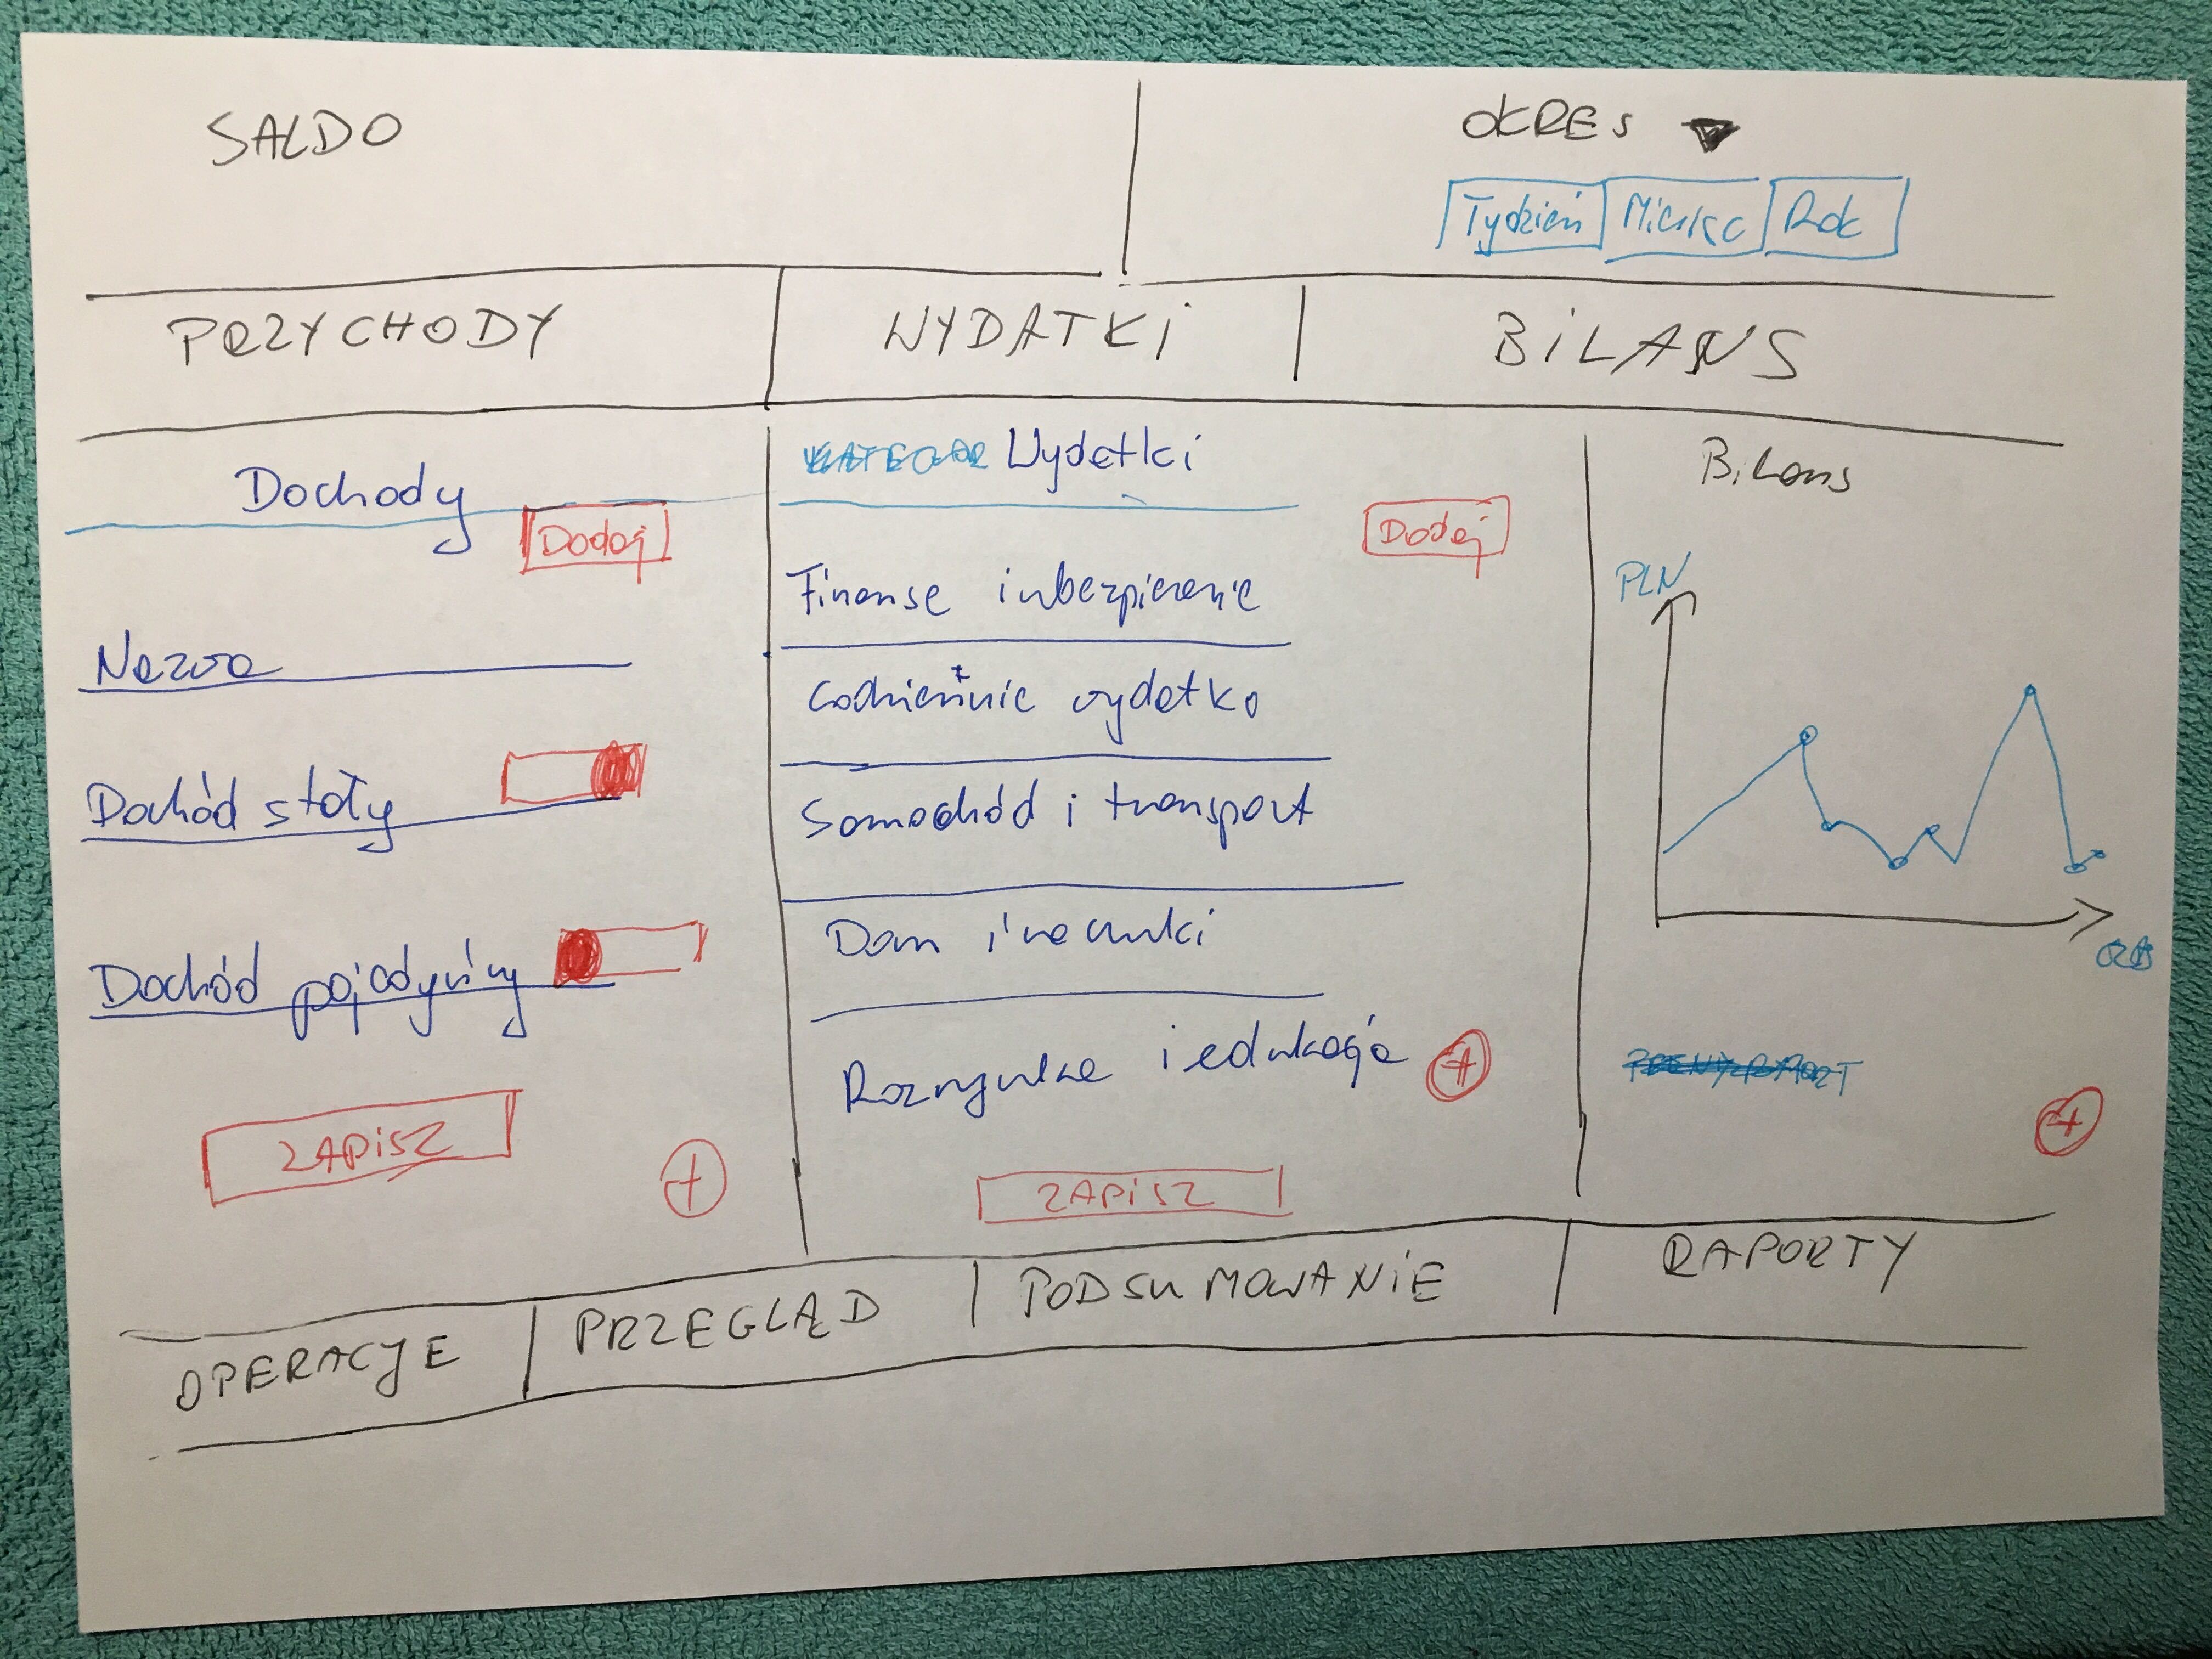 SALDO
OKRES
Tydzień Miesiąc Rok
PRZYCHODY WYDATKI BILANS
Dochody
Dodaj
Nazwa
Dochód stały
Dochód pojedyńczy
ZAPISZ
+
Wydatki
Dodaj
Finanse i ubezpieczenie
Codziennie wydatko
Samochód i transport
Dom i rachunki
Rozrywka i edukacja
+
ZAPISZ
Bilans
PLN
+
OPERACJE PRZEGLĄD PODSUMOWANIE RAPORTY